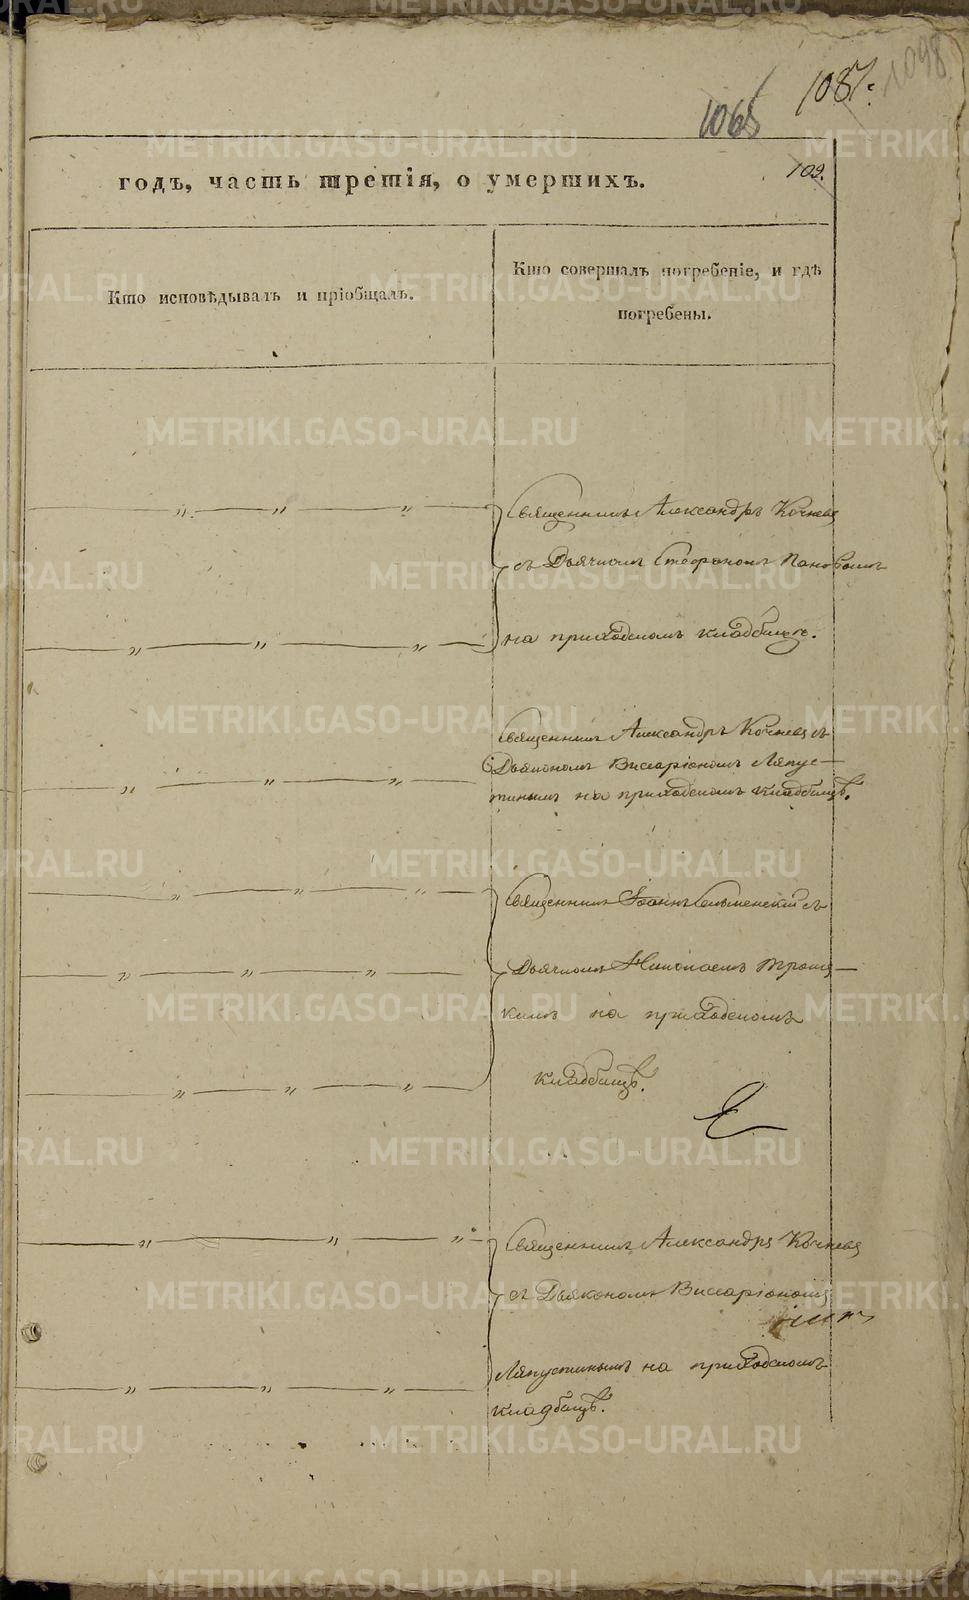 1098
1087.
1065
109.
годъ, часть третія, о умершихъ.
Кто исповѣдывалъ и пріобщалъ.
Кто совершалъ погребеніе, и гдѣ
погребены.
Священникъ Александръ Кочневъ
съ Дьячкомъ Стефаномъ Пановымъ
на приходскомъ кладбищѣ.
Священникъ Александръ Кочневъ съ
Дьякономъ Висаріономъ Ляпус-
тинымъ на приходскомъ кладбищѣ.
Священникъ Іоаннъ съ
Дьячкомъ Николаемъ
кимъ на приходскомъ
кладбищѣ.
Священникъ Александръ Кочневъ
съ Дьякономъ Висаріономъ
Ляпустинымъ на приходскомъ
кладбищѣ.
METRIKI.GASO-URAL.RU